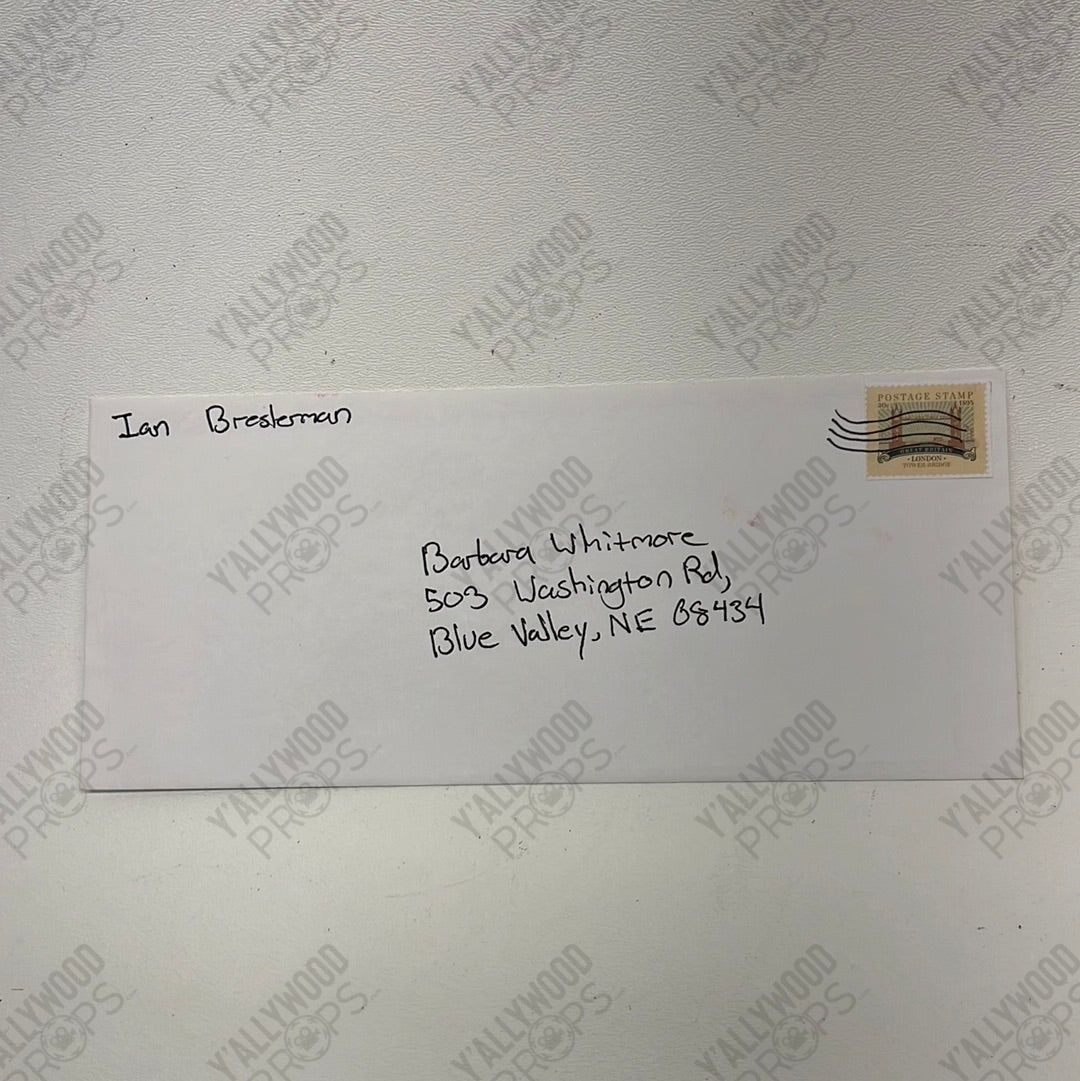 Ian Bresterman
POSTAGE STAMP
30c 1895
GREAT BRITAIN
• LONDON •
TOWER-BRIDGE
Barbara Whitmore
503 Washington Rd,
Blue Valley, NE 68434
Y'ALLYWOOD PROPS